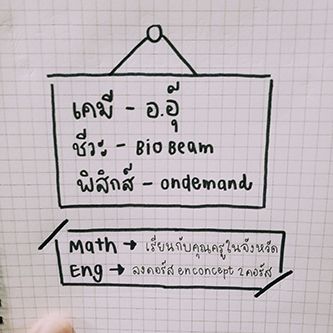 เคมี - อ.อุ๊
ชีวะ - BIO Beam
ฟิสิกส์ - ondemand
Math → เรียนกับคุณครูในจังหวัด
Eng → ลงคอร์ส enconcept 2 คอร์ส